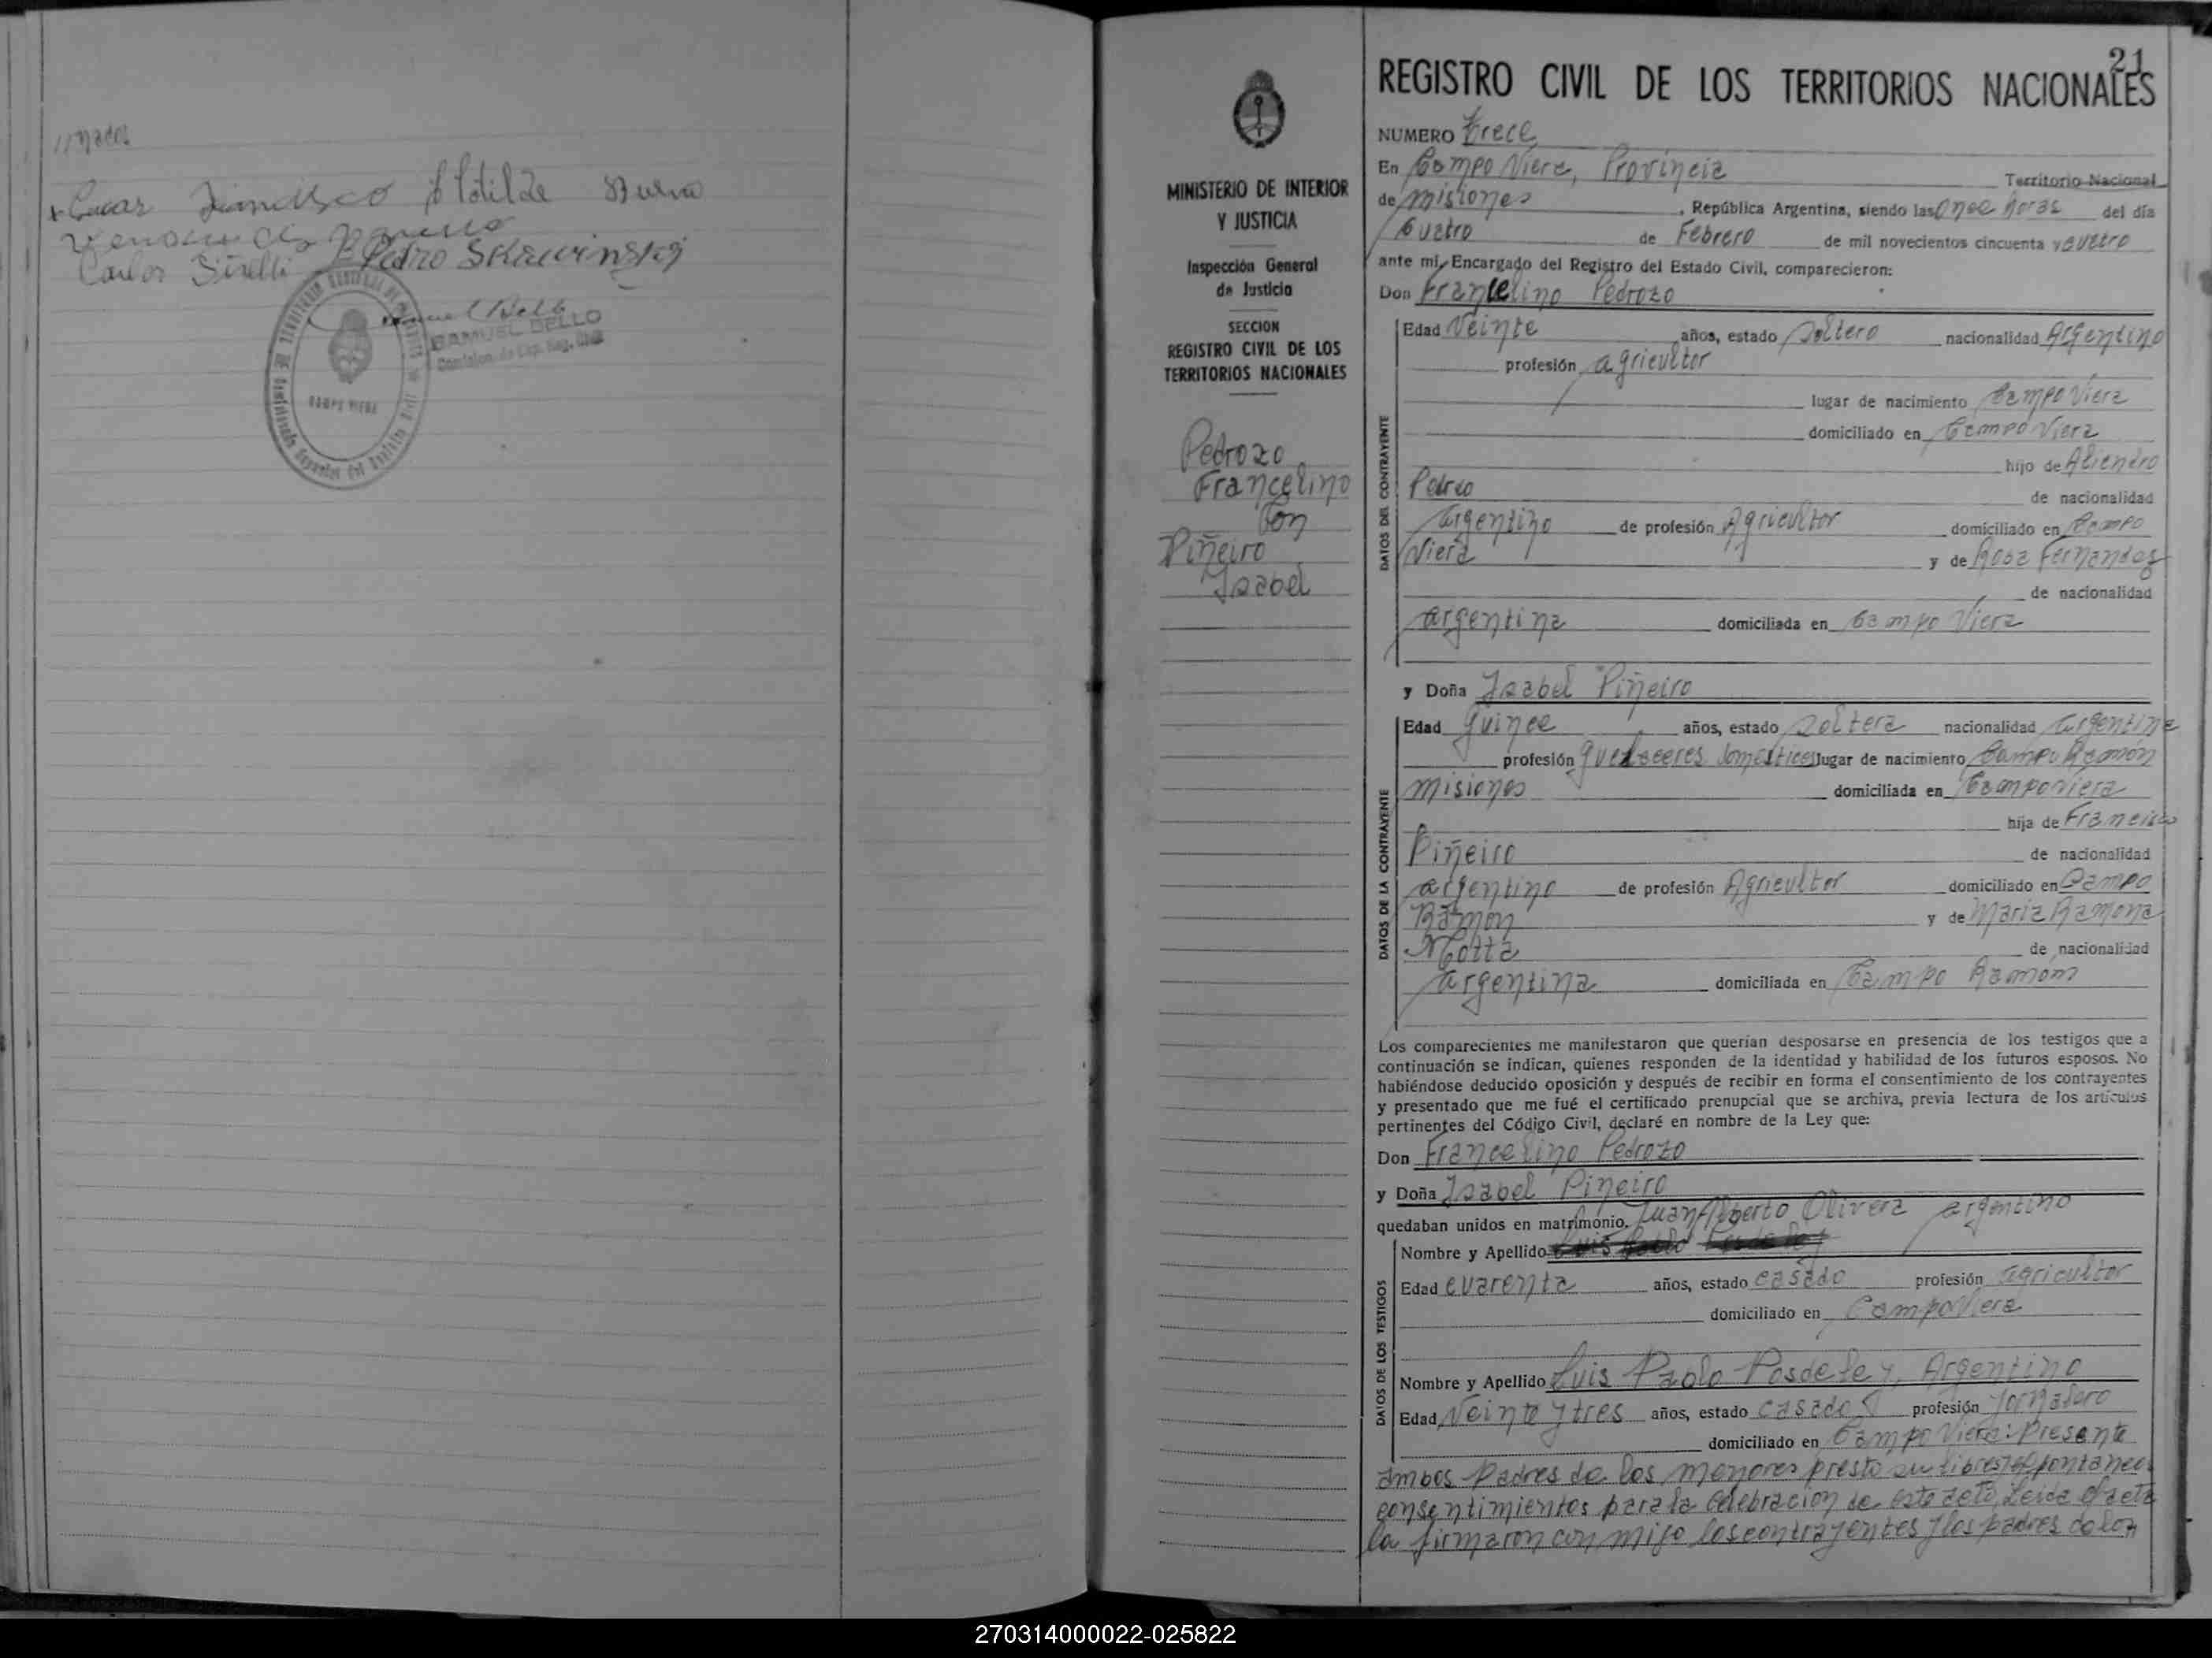 //nados
Lucas Francisco Clotilde
Carlos Sirelli Pedro Skrewinski
SAMUEL BELLO
CAMPO VIERA
21
REGISTRO CIVIL DE LOS TERRITORIOS NACIONALES
MINISTERIO DE INTERIOR
Y JUSTICIA
Inspección General
de Justicia
SECCION
REGISTRO CIVIL DE LOS
TERRITORIOS NACIONALES
Pedrozo
Francelino
Con
Piñeiro
Isabel
NUMERO Trece
En Campo Viera, Provincia Territorio Nacional
de Misiones, República Argentina, siendo las Once horas del día
Cuatro de Febrero de mil novecientos cincuenta y cuatro
ante mí, Encargado del Registro del Estado Civil, comparecieron:
Don Francelino Pedrozo
DATOS DEL CONTRAYENTE
Edad Veinte años, estado Soltero nacionalidad Argentino
profesión agricultor
lugar de nacimiento Campo Viera
domiciliado en Campo Viera
hijo de
de nacionalidad
argentino de profesión Agricultor domiciliado en Campo
Viera y de Rosa Fernandez
de nacionalidad
argentina domiciliada en Campo Viera
y Doña Isabel Piñeiro
DATOS DE LA CONTRAYENTE
Edad Quince años, estado soltera nacionalidad argentina
profesión quehaceres domesticos lugar de nacimiento Campo Ramón
Misiones domiciliada en Campo Viera
hija de Francisco
Piñeiro de nacionalidad
argentino de profesión Agricultor domiciliado en Campo
Ramón y de Maria Ramona
Motta de nacionalidad
argentina domiciliada en Campo Ramom
Los comparecientes me manifestaron que querían desposarse en presencia de los testigos que a
continuación se indican, quienes responden de la identidad y habilidad de los futuros esposos. No
habiéndose deducido oposición y después de recibir en forma el consentimiento de los contrayentes
y presentado que me fué el certificado prenupcial que se archiva, previa lectura de los artículos
pertinentes del Código Civil, declaré en nombre de la Ley que:
Don Francelino Pedrozo
y Doña Isabel Piñeiro
quedaban unidos en matrimonio. Juan Alberto Olivera argentino
DATOS DE LOS TESTIGOS
Nombre y Apellido
Edad cuarenta años, estado casado profesión agricultor
domiciliado en Campo Viera
Nombre y Apellido Luis Pablo Posdeley, Argentino
Edad Veinte y tres años, estado casado profesión Jornalero
domiciliado en Campo Viera: Presente
ambos padres de los menores presto su libres y espontaneos
consentimientos para la celebracion de este acto, Leida el acta
la firmaron con migo los contrayentes y los padres de los
270314000022-025822